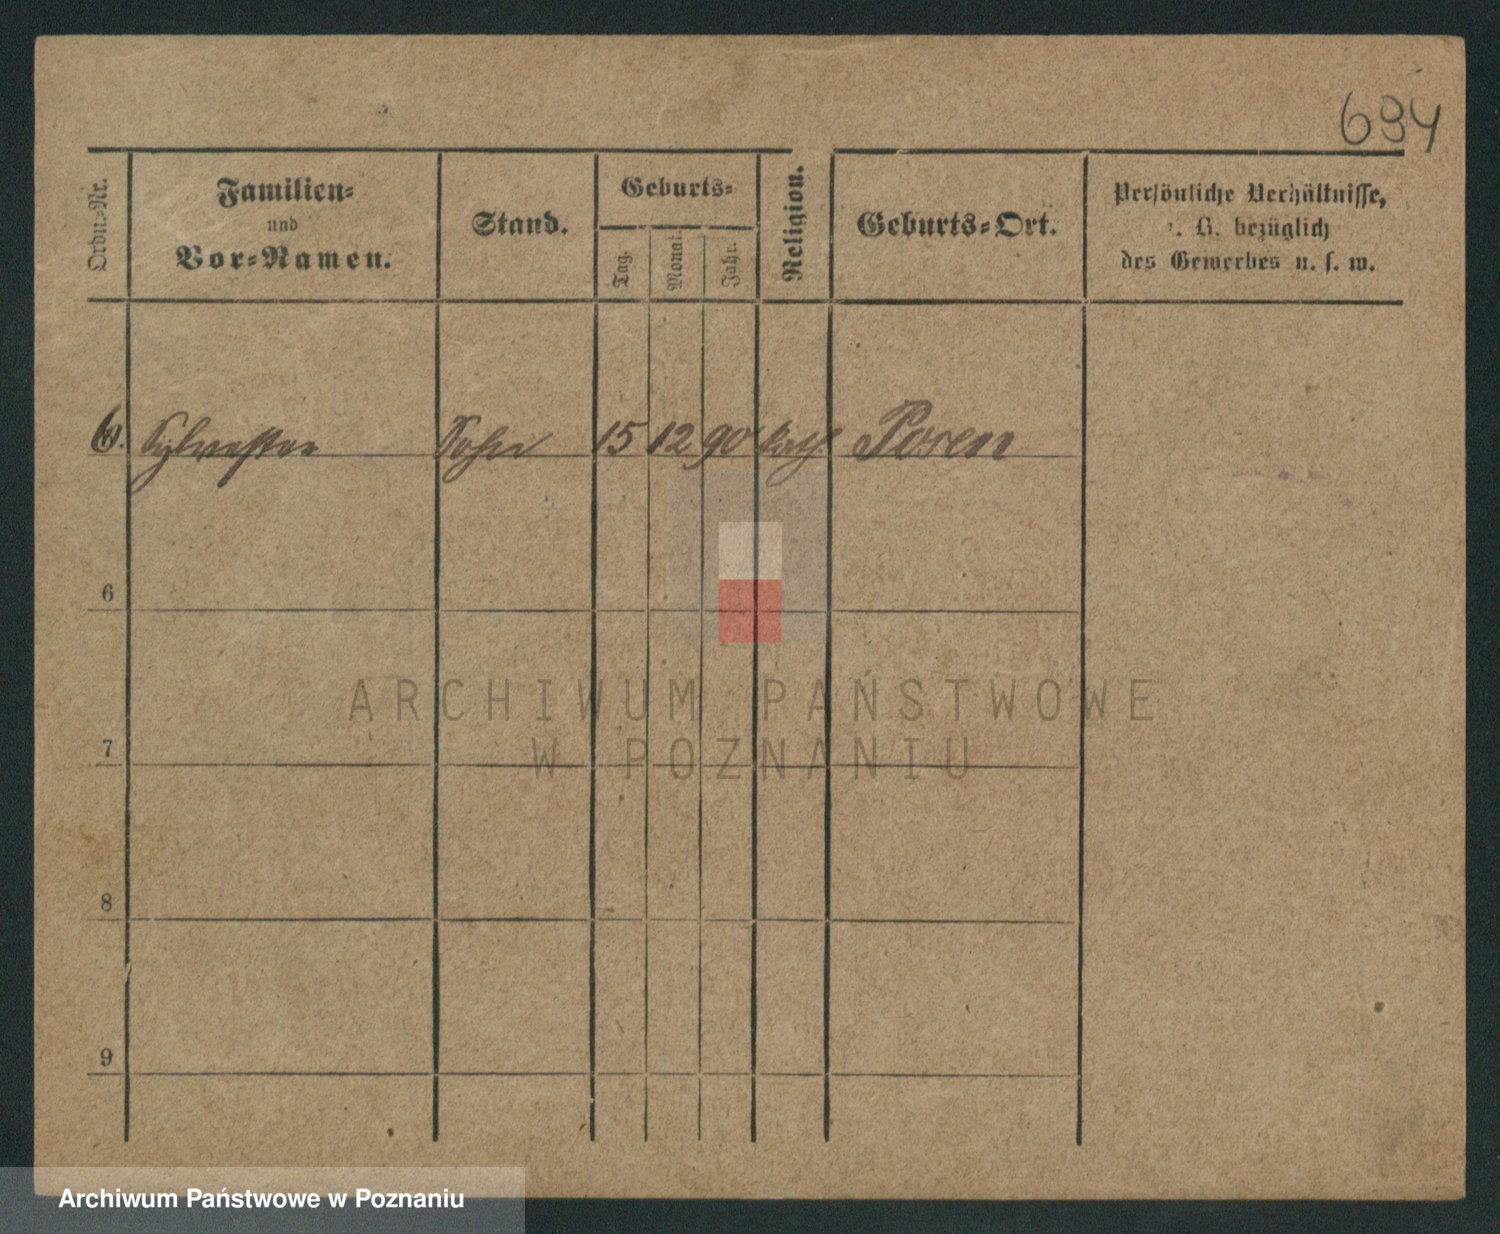 694
Ordn.-Nr.
Familien-
und
Vor-Namen.
Stand.
Geburts-
Tag.
Monat.
Jahr.
Religion.
Geburts-Ort.
Persönliche Verhältnisse,
z. B. bezüglich
des Gewerbes u. s. w.
6. Sylvester Sohn 15 12 90 kath. Posen
6
7
8
9
ARCHIWUM PAŃSTWOWE
W POZNANIU
Archiwum Państwowe w Poznaniu